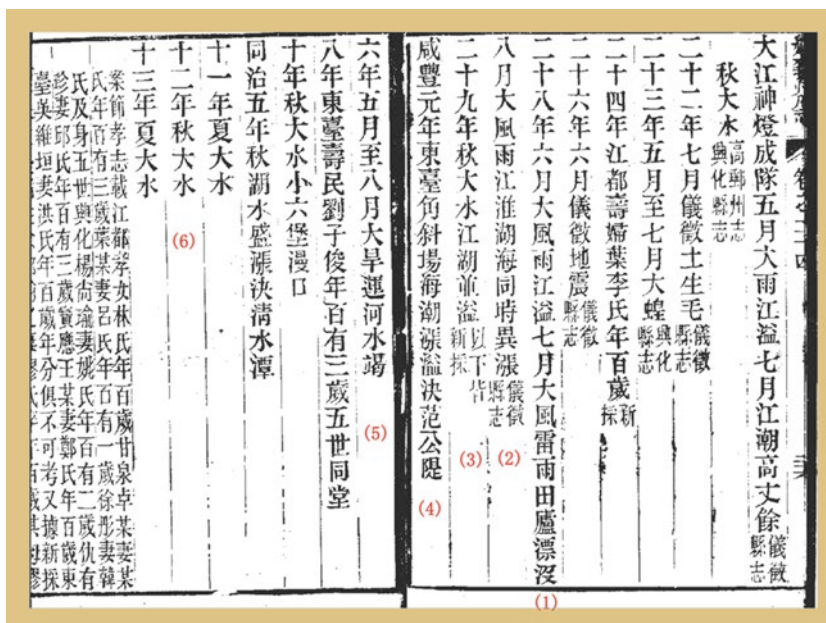 大江神燈成隊五月大雨江溢七月江潮高丈餘儀徵縣志
秋大水高郵州志興化縣志
二十二年七月儀徵土生毛儀徵縣志
二十三年五月至七月大蝗興化縣志
二十四年江都壽婦葉李氏年百歲新採
二十六年六月儀徵地震儀徵縣志
二十八年六月大風雨江溢七月大風雷雨田廬漂沒
(1)
八月大風雨江淮湖海同時異漲儀徵縣志
(2)
二十九年秋大水江湖並溢以下皆新採
(3)
咸豐元年東臺角斜場海潮漲溢決范公隄
(4)
六年五月至八月大旱運河水竭
(5)
八年東臺壽民劉子俊年百有三歲五世同堂
十年秋大水小六堡漫口
同治五年秋湖水盛漲決清水潭
十一年夏大水
十二年秋大水
(6)
十三年夏大水
案節孝志載江都孝女林氏年百歲甘泉卓某妻某
氏年百有三歲葉某妻呂氏年百有一歲徐彤妻韓
氏及身五世興化楊尚瑜妻姚氏年百有二歲仇有
珍妻邱氏年百有三歲寶應王某妻鄭氏年百歲東
臺英維垣妻洪氏年百歲年分俱不可考又據新採